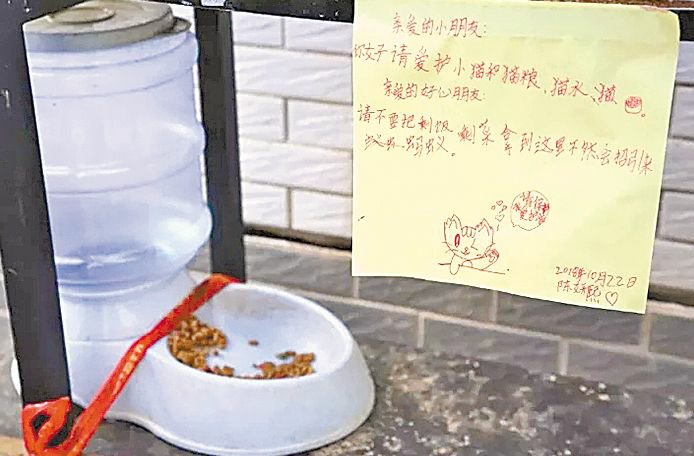 亲爱的小朋友:
请爱护小猫和猫粮、猫水、猫。
亲爱的好心朋友:
请不要把剩饭剩菜拿到这里不然会招引来
虫、蚂蚁。
2018年10月22日
陈妍熙♡